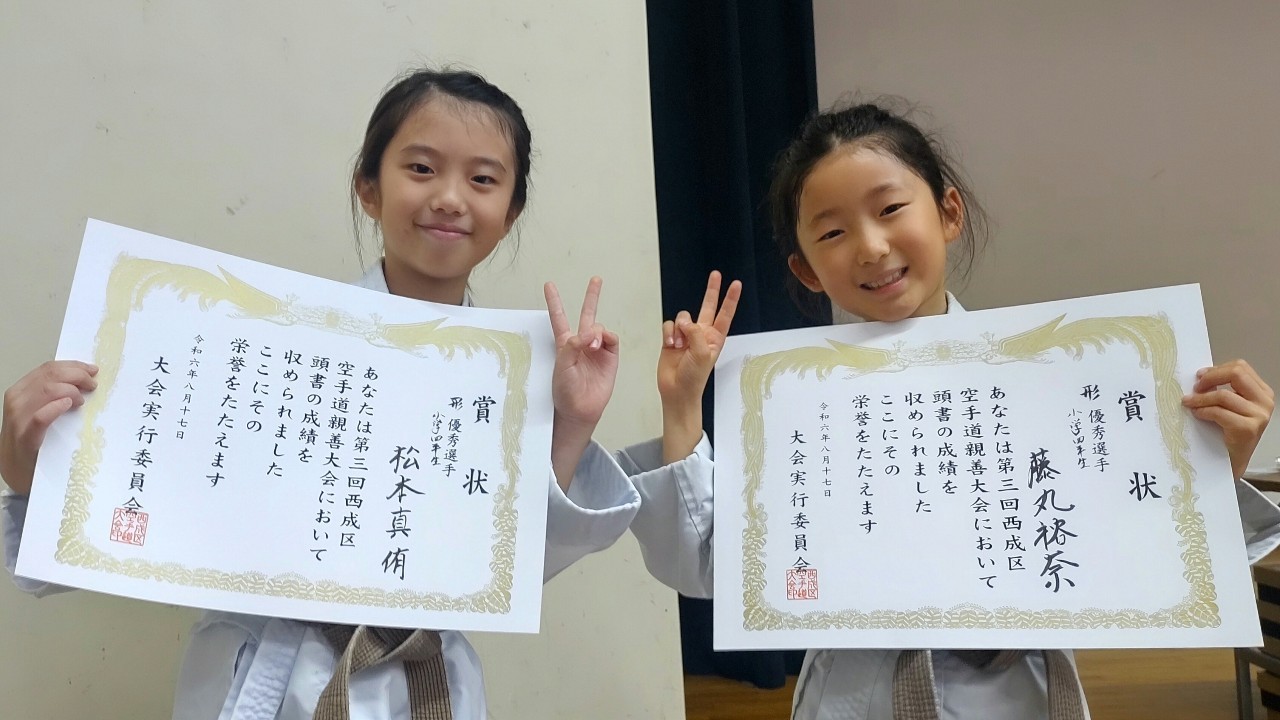 賞状
形 優秀選手
小学四年生
松本真侑
あなたは第三回西成区
空手道親善大会において
頭書の成績を
収められました
ここにその
栄誉をたたえます
令和六年八月十七日
大会実行委員会
賞状
形 優秀選手
小学四年生
藤丸裕奈
あなたは第三回西成区
空手道親善大会において
頭書の成績を
収められました
ここにその
栄誉をたたえます
令和六年八月十七日
大会実行委員会